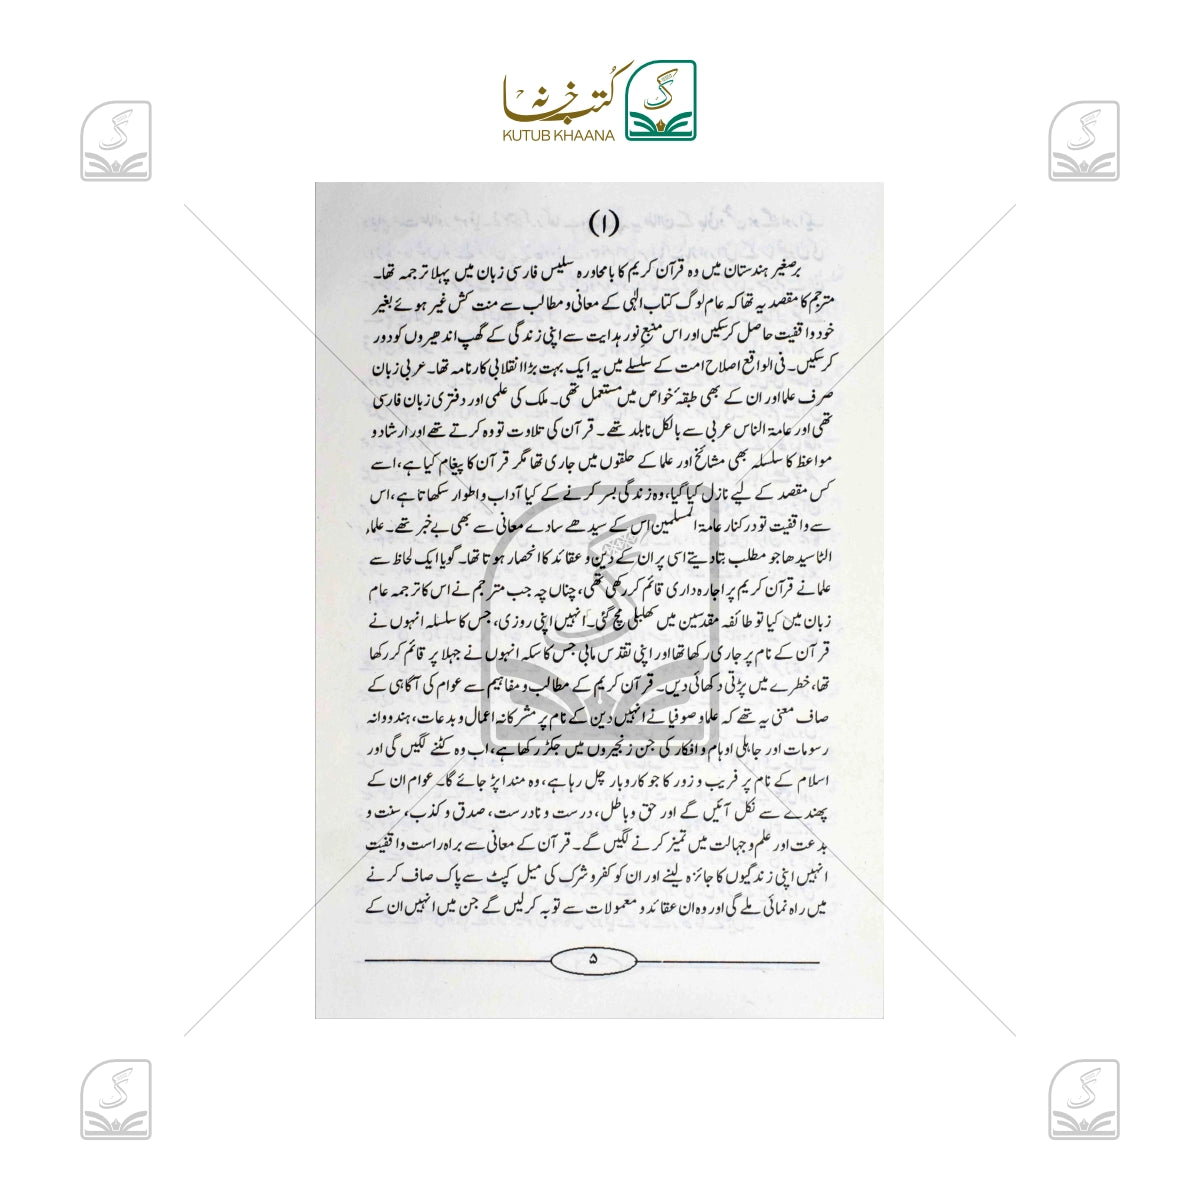 کتب خانہ
KUTUB KHAANA
(۱)
برصغیر ہندستان میں وہ قرآن کریم کا بامحاورہ سلیس فارسی زبان میں پہلا ترجمہ تھا۔
مترجم کا مقصد یہ تھا کہ عام لوگ کتاب الٰہی کے معانی و مطالب سے منت کش غیر ہوئے بغیر
خود واقفیت حاصل کرسکیں اور اس منبع نور ہدایت سے اپنی زندگی کے گھپ اندھیروں کو دور
کرسکیں۔ فی الواقع اصلاح امت کے سلسلے میں یہ ایک بہت بڑا انقلابی کارنامہ تھا۔ عربی زبان
صرف علما اور ان کے بھی طبقۂ خواص میں مستعمل تھی۔ ملک کی علمی اور دفتری زبان فارسی
تھی اور عامۃ الناس عربی سے بالکل نابلد تھے۔ قرآن کی تلاوت تو وہ کرتے تھے اور ارشاد و
مواعظ کا سلسلہ بھی مشائخ اور علما کے حلقوں میں جاری تھا مگر قرآن کا پیغام کیا ہے، اسے
کس مقصد کے لیے نازل کیا گیا، وہ زندگی بسر کرنے کے کیا آداب و اطوار سکھاتا ہے، اس
سے واقفیت تو درکنار عامۃ المسلمین اس کے سیدھے سادے معانی سے بھی بے خبر تھے۔ علماء
الٹا سیدھا جو مطلب بتا دیتے اسی پر ان کے دین و عقائد کا انحصار ہوتا تھا۔ گویا ایک لحاظ سے
علما نے قرآن کریم پر اجارہ داری قائم کر رکھی تھی، چناں چہ جب مترجم نے اس کا ترجمہ عام
زبان میں کیا تو طائفہ مقدسین میں کھلبلی مچ گئی۔ انہیں اپنی روزی، جس کا سلسلہ انہوں نے
قرآن کے نام پر جاری رکھا تھا اور اپنی تقدس مابی جس کا سکہ انہوں نے جہلا پر قائم کر رکھا
تھا، خطرے میں پڑتی دکھائی دیں۔ قرآن کریم کے مطالب و مفاہیم سے عوام کی آگاہی کے
صاف معنی یہ تھے کہ علما و صوفیا نے انہیں دین کے نام پر مشرکانہ اعمال و بدعات، ہندووانہ
رسومات اور جاہلی اوہام و افکار کی جن زنجیروں میں جکڑ رکھا ہے، اب وہ کٹنے لگیں گی اور
اسلام کے نام پر فریب و زور کا جو کاروبار چل رہا ہے، وہ مندا پڑ جائے گا۔ عوام ان کے
پھندے سے نکل آئیں گے اور حق و باطل، درست و نادرست، صدق و کذب، سنت و
بدعت اور علم و جہالت میں تمیز کرنے لگیں گے۔ قرآن کے معانی سے براہ راست واقفیت
انہیں اپنی زندگیوں کا جائزہ لینے اور ان کو کفر و شرک کی میل کپٹ سے پاک صاف کرنے
میں راہ نمائی ملے گی اور وہ ان عقائد و معمولات سے توبہ کرلیں گے جن میں انہیں ان کے
۵